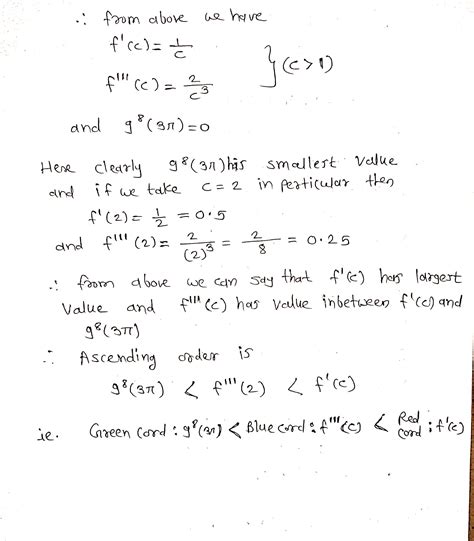 ∴ from above we have
f'(c) = 1/c
f'''(c) = 2/c³ } (c > 1)
and g⁸(3π) = 0
Here clearly g⁸(3π) his smallest value
and if we take c = 2 in perticular then
f'(2) = 1/2 = 0.5
and f'''(2) = 2/(2)³ = 2/8 = 0.25
∴ from above we can say that f'(c) has largest
value and f'''(c) has value inbetween f'(c) and
g⁸(3π)
∴ Ascending order is
g⁸(3π) < f'''(2) < f'(c)
ie. Green Cord : g⁸(3π) < Blue cord : f'''(c) < Red cord : f'(c)